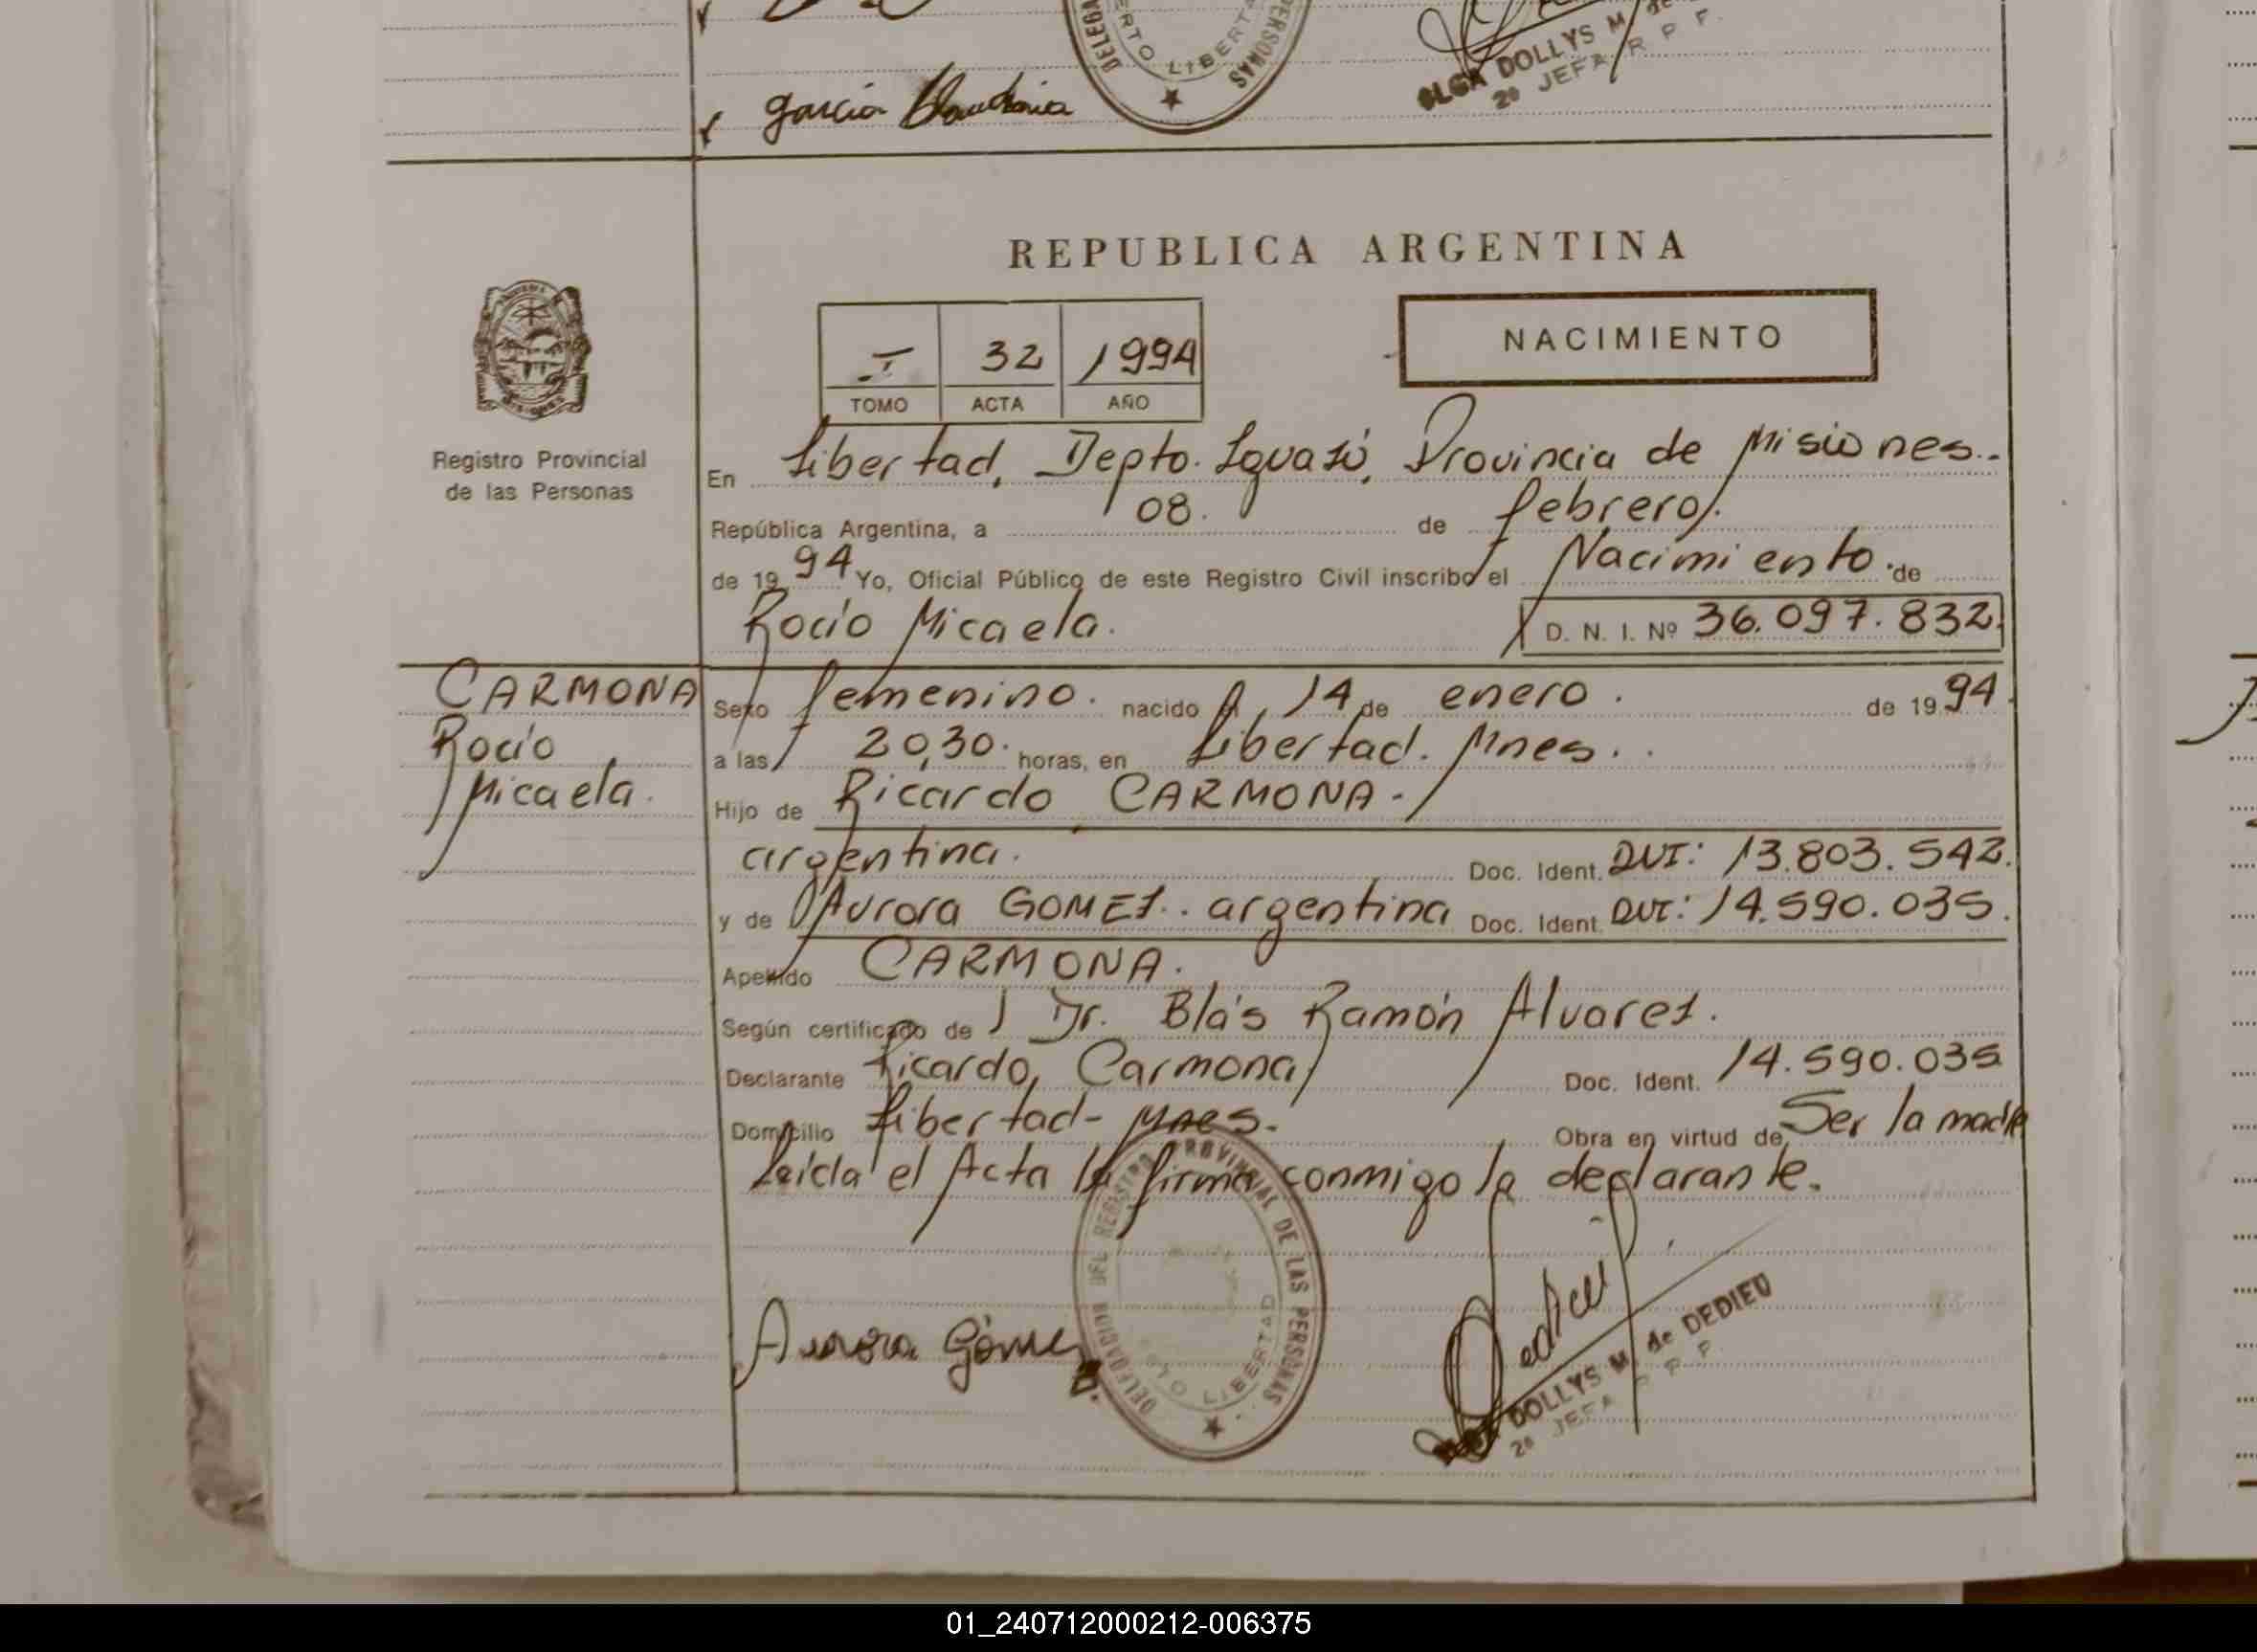 DELEGA
PERSONAS
ERTO LIBERTA
OLGA DOLLYS M. de
2º JEFA R P P.
garcia
REPUBLICA ARGENTINA
I 32 1994
TOMO ACTA AÑO
NACIMIENTO
Registro Provincial
de las Personas
En Libertad, Depto. Iguazú, Provincia de Misiones.-
República Argentina, a 08. de febrero.
de 19 94 Yo, Oficial Público de este Registro Civil inscribo el Nacimiento. de
Rocío Micaela.
D. N. I. Nº 36.097.832.
CARMONA
Rocío
Micaela.
Sexo femenino. nacido el 14 de enero. de 19 94.
a las 20,30. horas, en Libertad. Mnes..
Hijo de Ricardo CARMONA-
argentina. Doc. Ident. DUI: 13.803.542.
y de Aurora GOMEZ.. argentina Doc. Ident. DUI: 14.590.035.
Apellido CARMONA.
Según certificado de Dr. Blás Ramón Alvarez.
Declarante Ricardo, Carmona, Doc. Ident. 14.590.035
Domicilio Libertad- Mnes.- Obra en virtud de Ser la madre
Leída el Acta la firma conmigo la declarante.
DELEGACION DEL REGISTRO PROVINCIAL DE LAS PERSONAS
LIBERTAD
Aurora Gómez
Dedieu
OLGA DOLLYS M. de DEDIEU
2º JEFA R P P.
01_240712000212-006375